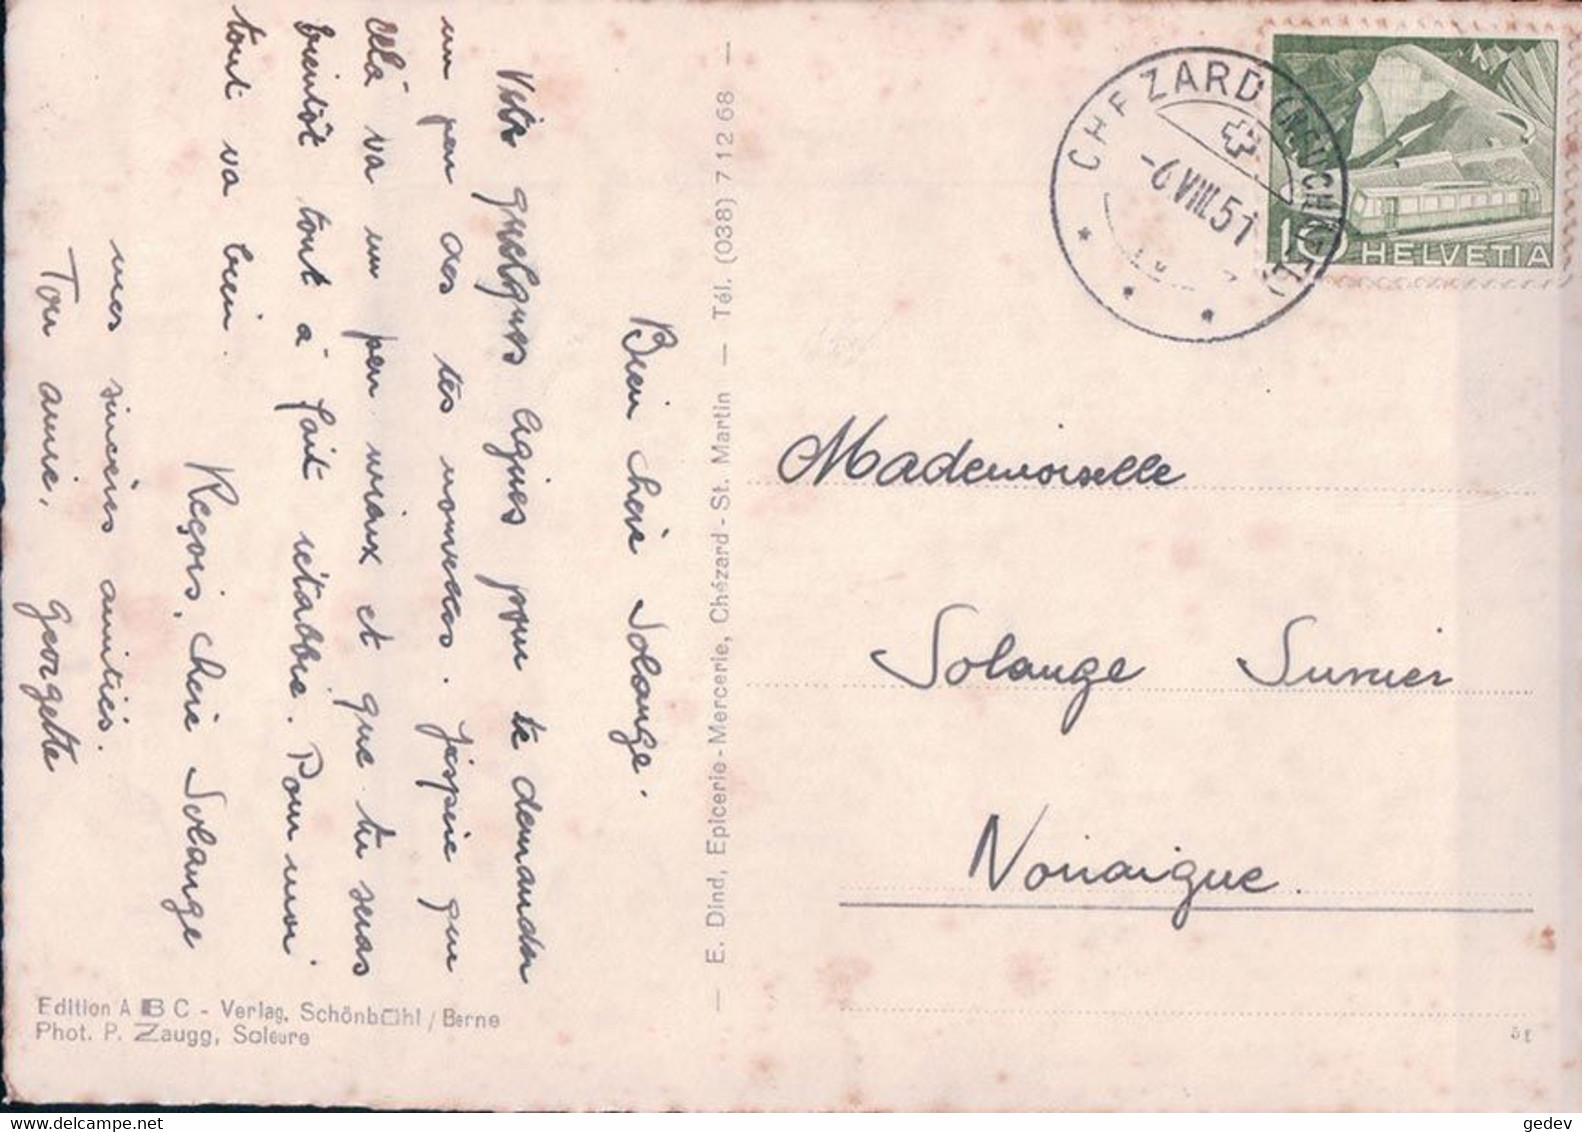 Bien chère Solange.
Voir quelques lignes pour te demander
un peu des tes nouvelles. J'éspère que
cela va un peu mieux et que tu seras
bientôt tout à fait rétablie. Pour moi
tout va bien.
Reçois, chère Solange
mes sincères amitiés.
Ton amie,
Georgette
Edition ABC - Verlag, Schönbühl / Berne
Phot. P. Zaugg, Soleure
— E. Dind, Epicerie - Mercerie, Chézard - St. Martin — Tél. (038) 7 12 68 —
CHEZARD (NEUCHATEL)
-6.VIII.51
10 HELVETIA
Mademoiselle
Solange
Noiraigue
51
gedev